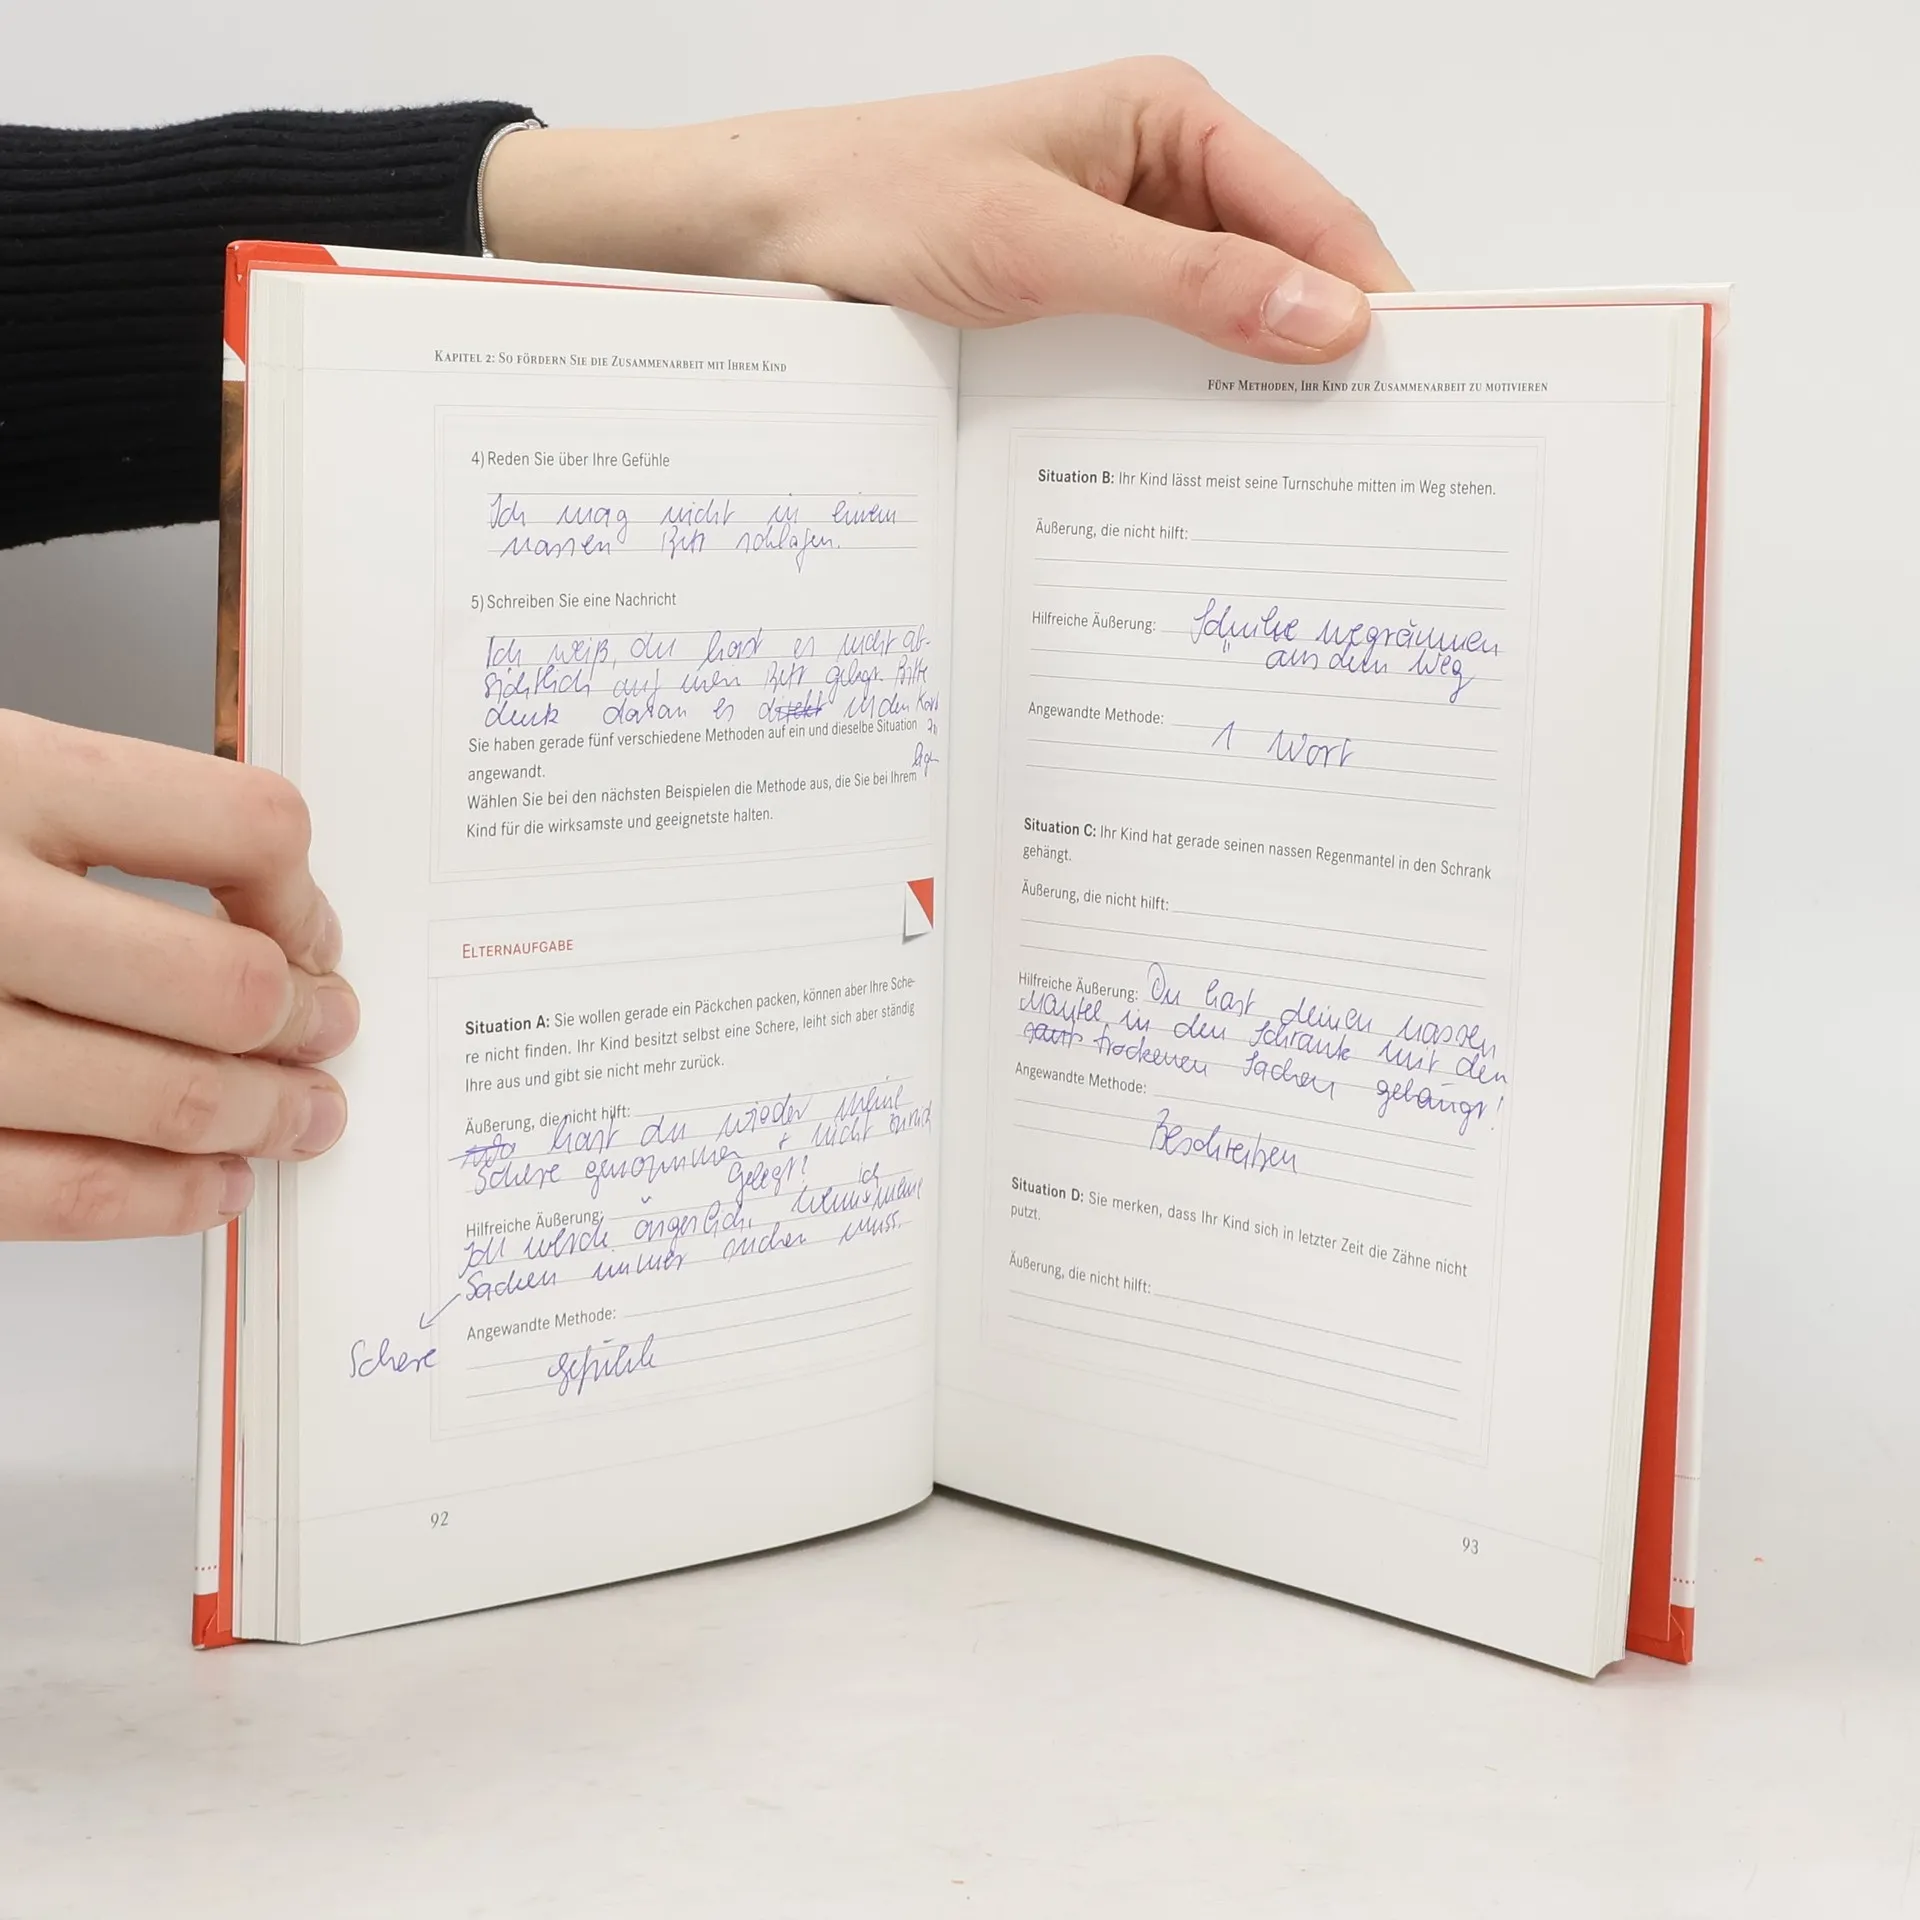 KAPITEL 2: SO FÖRDERN SIE DIE ZUSAMMENARBEIT MIT IHREM KIND
4) Reden Sie über Ihre Gefühle
Ich mag nicht in einem
nassen Bett schlafen.
5) Schreiben Sie eine Nachricht
Ich weiß, du hast es nicht ab-
sichtlich auf mein Bett gelegt. Bitte
denk daran es direkt in den Korb
zu
legen
Sie haben gerade fünf verschiedene Methoden auf ein und dieselbe Situation
angewandt.
Wählen Sie bei den nächsten Beispielen die Methode aus, die Sie bei Ihrem
Kind für die wirksamste und geeignetste halten.
ELTERNAUFGABE
Situation A: Sie wollen gerade ein Päckchen packen, können aber Ihre Sche-
re nicht finden. Ihr Kind besitzt selbst eine Schere, leiht sich aber ständig
Ihre aus und gibt sie nicht mehr zurück.
Äußerung, die nicht hilft:
hast du wieder meine
Schere genommen + nicht zurück
gelegt?
Hilfreiche Äußerung:
Ich werde ärgerlich, wenn ich meine
Sachen immer suchen muss.
Schere
Angewandte Methode:
Gefühle
92
FÜNF METHODEN, IHR KIND ZUR ZUSAMMENARBEIT ZU MOTIVIEREN
Situation B: Ihr Kind lässt meist seine Turnschuhe mitten im Weg stehen.
Äußerung, die nicht hilft:
Hilfreiche Äußerung: Schuhe wegräumen
" aus dem Weg
Angewandte Methode:
1 Wort
Situation C: Ihr Kind hat gerade seinen nassen Regenmantel in den Schrank
gehängt.
Äußerung, die nicht hilft:
Hilfreiche Äußerung: Du hast deinen nassen
Mantel in den Schrank mit den
trockenen Sachen gehängt!
Angewandte Methode:
Beschreiben
Situation D: Sie merken, dass Ihr Kind sich in letzter Zeit die Zähne nicht
putzt.
Äußerung, die nicht hilft:
93